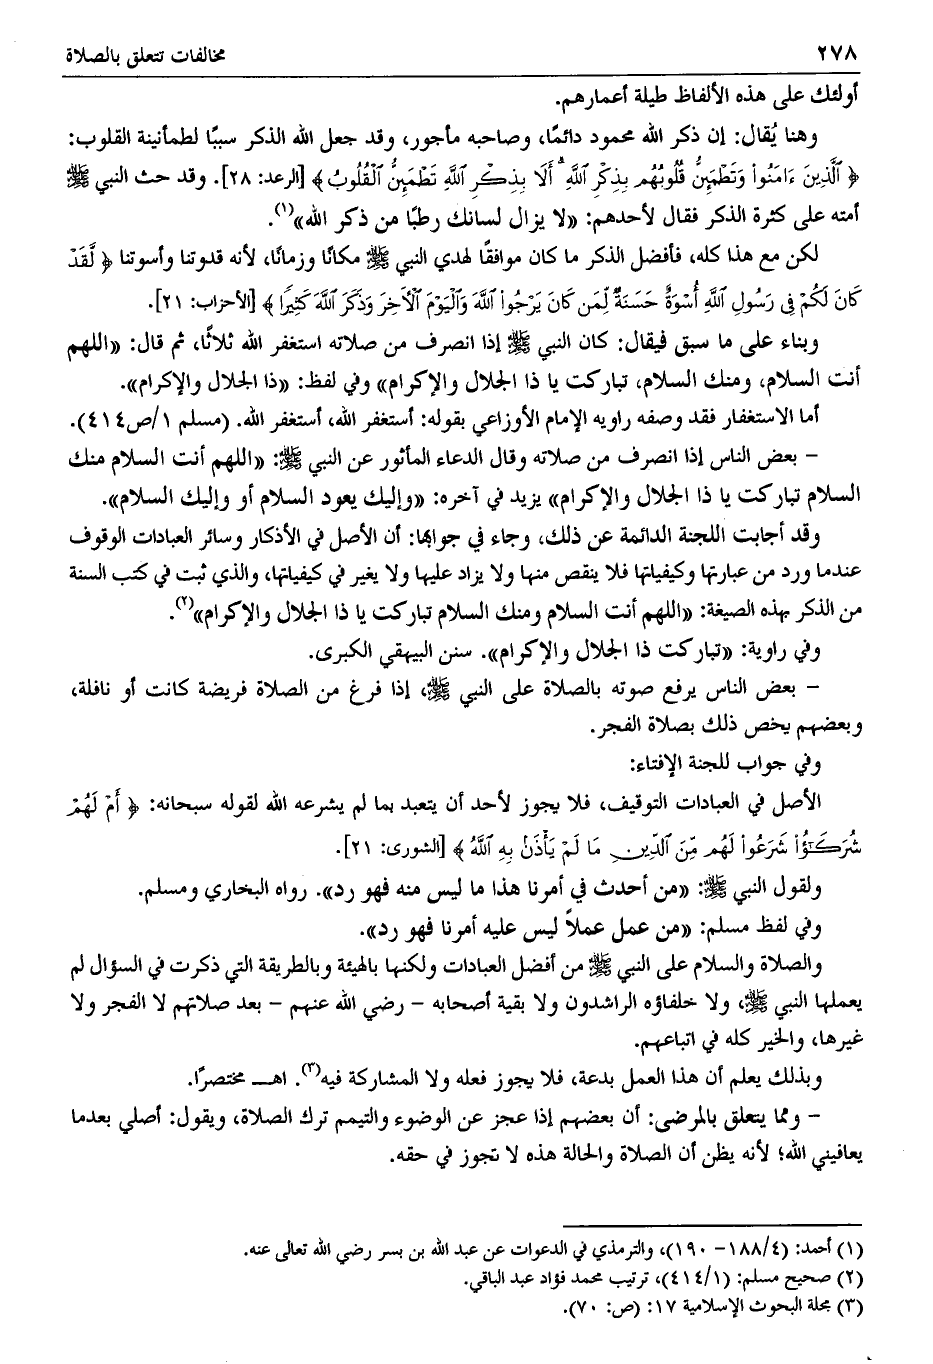 ٢٧٨
مخالفات تتعلق بالصلاة
أولئك على هذه الألفاظ طيلة أعمارهم.
وهنا يُقال: إن ذكر الله محمود دائمًا، وصاحبه مأجور، وقد جعل الله الذكر سببًا لطمأنينة القلوب:
﴿ ٱلَّذِينَ ءَامَنُوا۟ وَتَطْمَئِنُّ قُلُوبُهُم بِذِكْرِ ٱللَّهِ ۗ أَلَا بِذِكْرِ ٱللَّهِ تَطْمَئِنُّ ٱلْقُلُوبُ ﴾ [الرعد: ٢٨]. وقد حث النبي ﷺ
أمته على كثرة الذكر فقال لأحدهم: «لا يزال لسانك رطبًا من ذكر الله»(١).
لكن مع هذا كله، فأفضل الذكر ما كان موافقًا لهدي النبي ﷺ مكانًا وزمانًا، لأنه قدوتنا وأسوتنا ﴿ لَّقَدْ
كَانَ لَكُمْ فِى رَسُولِ ٱللَّهِ أُسْوَةٌ حَسَنَةٌ لِّمَن كَانَ يَرْجُوا۟ ٱللَّهَ وَٱلْيَوْمَ ٱلْآخِرَ وَذَكَرَ ٱللَّهَ كَثِيرًا ﴾ [الأحزاب: ٢١].
وبناء على ما سبق فيقال: كان النبي ﷺ إذا انصرف من صلاته استغفر الله ثلاثًا، ثم قال: «اللهم
أنت السلام، ومنك السلام، تباركت يا ذا الجلال والإكرام» وفي لفظ: «ذا الجلال والإكرام».
أما الاستغفار فقد وصفه راويه الإمام الأوزاعي بقوله: أستغفر الله، أستغفر الله. (مسلم ١/ص٤١٤).
– بعض الناس إذا انصرف من صلاته وقال الدعاء المأثور عن النبي ﷺ: «اللهم أنت السلام منك
السلام تباركت يا ذا الجلال والإكرام» يزيد في آخره: «وإليك يعود السلام أو وإليك السلام».
وقد أجابت اللجنة الدائمة عن ذلك، وجاء في جوابها: أن الأصل في الأذكار وسائر العبادات الوقوف
عندما ورد من عبارتها وكيفياتها فلا ينقص منها ولا يزاد عليها ولا يغير في كيفياتها، والذي ثبت في كتب السنة
من الذكر بهذه الصيغة: «اللهم أنت السلام ومنك السلام تباركت يا ذا الجلال والإكرام»(٢).
وفي راوية: «تباركت ذا الجلال والإكرام». سنن البيهقي الكبرى.
– بعض الناس يرفع صوته بالصلاة على النبي ﷺ، إذا فرغ من الصلاة فريضة كانت أو نافلة،
وبعضهم يخص ذلك بصلاة الفجر.
وفي جواب للجنة الإفتاء:
الأصل في العبادات التوقيف، فلا يجوز لأحد أن يتعبد بما لم يشرعه الله لقوله سبحانه: ﴿ أَمْ لَهُمْ
شُرَكَـٰٓؤُا۟ شَرَعُوا۟ لَهُم مِّنَ ٱلدِّينِ مَا لَمْ يَأْذَنۢ بِهِ ٱللَّهُ ﴾ [الشورى: ٢١].
ولقول النبي ﷺ: «من أحدث في أمرنا هذا ما ليس منه فهو رد». رواه البخاري ومسلم.
وفي لفظ مسلم: «من عمل عملاً ليس عليه أمرنا فهو رد».
والصلاة والسلام على النبي ﷺ من أفضل العبادات ولكنها بالهيئة وبالطريقة التي ذكرت في السؤال لم
يعملها النبي ﷺ، ولا خلفاؤه الراشدون ولا بقية أصحابه – رضي الله عنهم – بعد صلاتهم لا الفجر ولا
غيرها، والخير كله في اتباعهم.
وبذلك يعلم أن هذا العمل بدعة، فلا يجوز فعله ولا المشاركة فيه(٣). اهـ مختصرًا.
– ومما يتعلق بالمرضى: أن بعضهم إذا عجز عن الوضوء والتيمم ترك الصلاة، ويقول: أصلي بعدما
يعافيني الله؛ لأنه يظن أن الصلاة والحالة هذه لا تجوز في حقه.
(١) أحمد: (٤/١٨٨– ١٩٠)، والترمذي في الدعوات عن عبد الله بن بسر رضي الله تعالى عنه.
(٢) صحيح مسلم: (١/٤١٤)، ترتيب محمد فؤاد عبد الباقي.
(٣) مجلة البحوث الإسلامية ١٧: (ص: ٧٠).